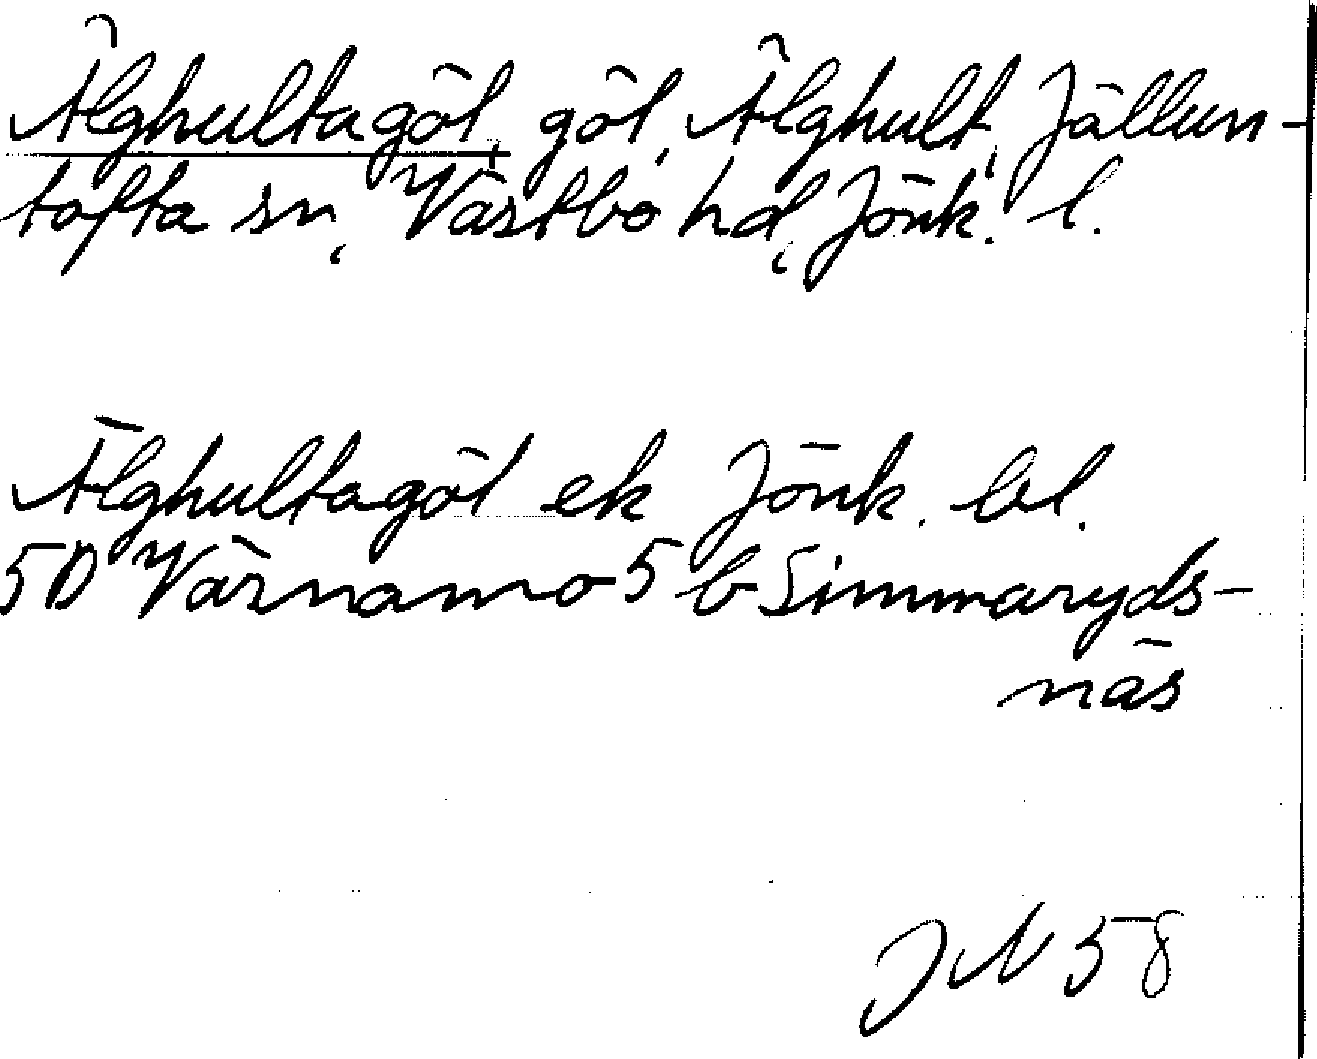 Älghultagöl, göl, Älghult, Jällun-
tofta sn, Västbo hd, Jönk. l.
Älghultagöl ek Jönk. bl.
5D Värnamo 5 b Simmaryds-
näs
JN 58